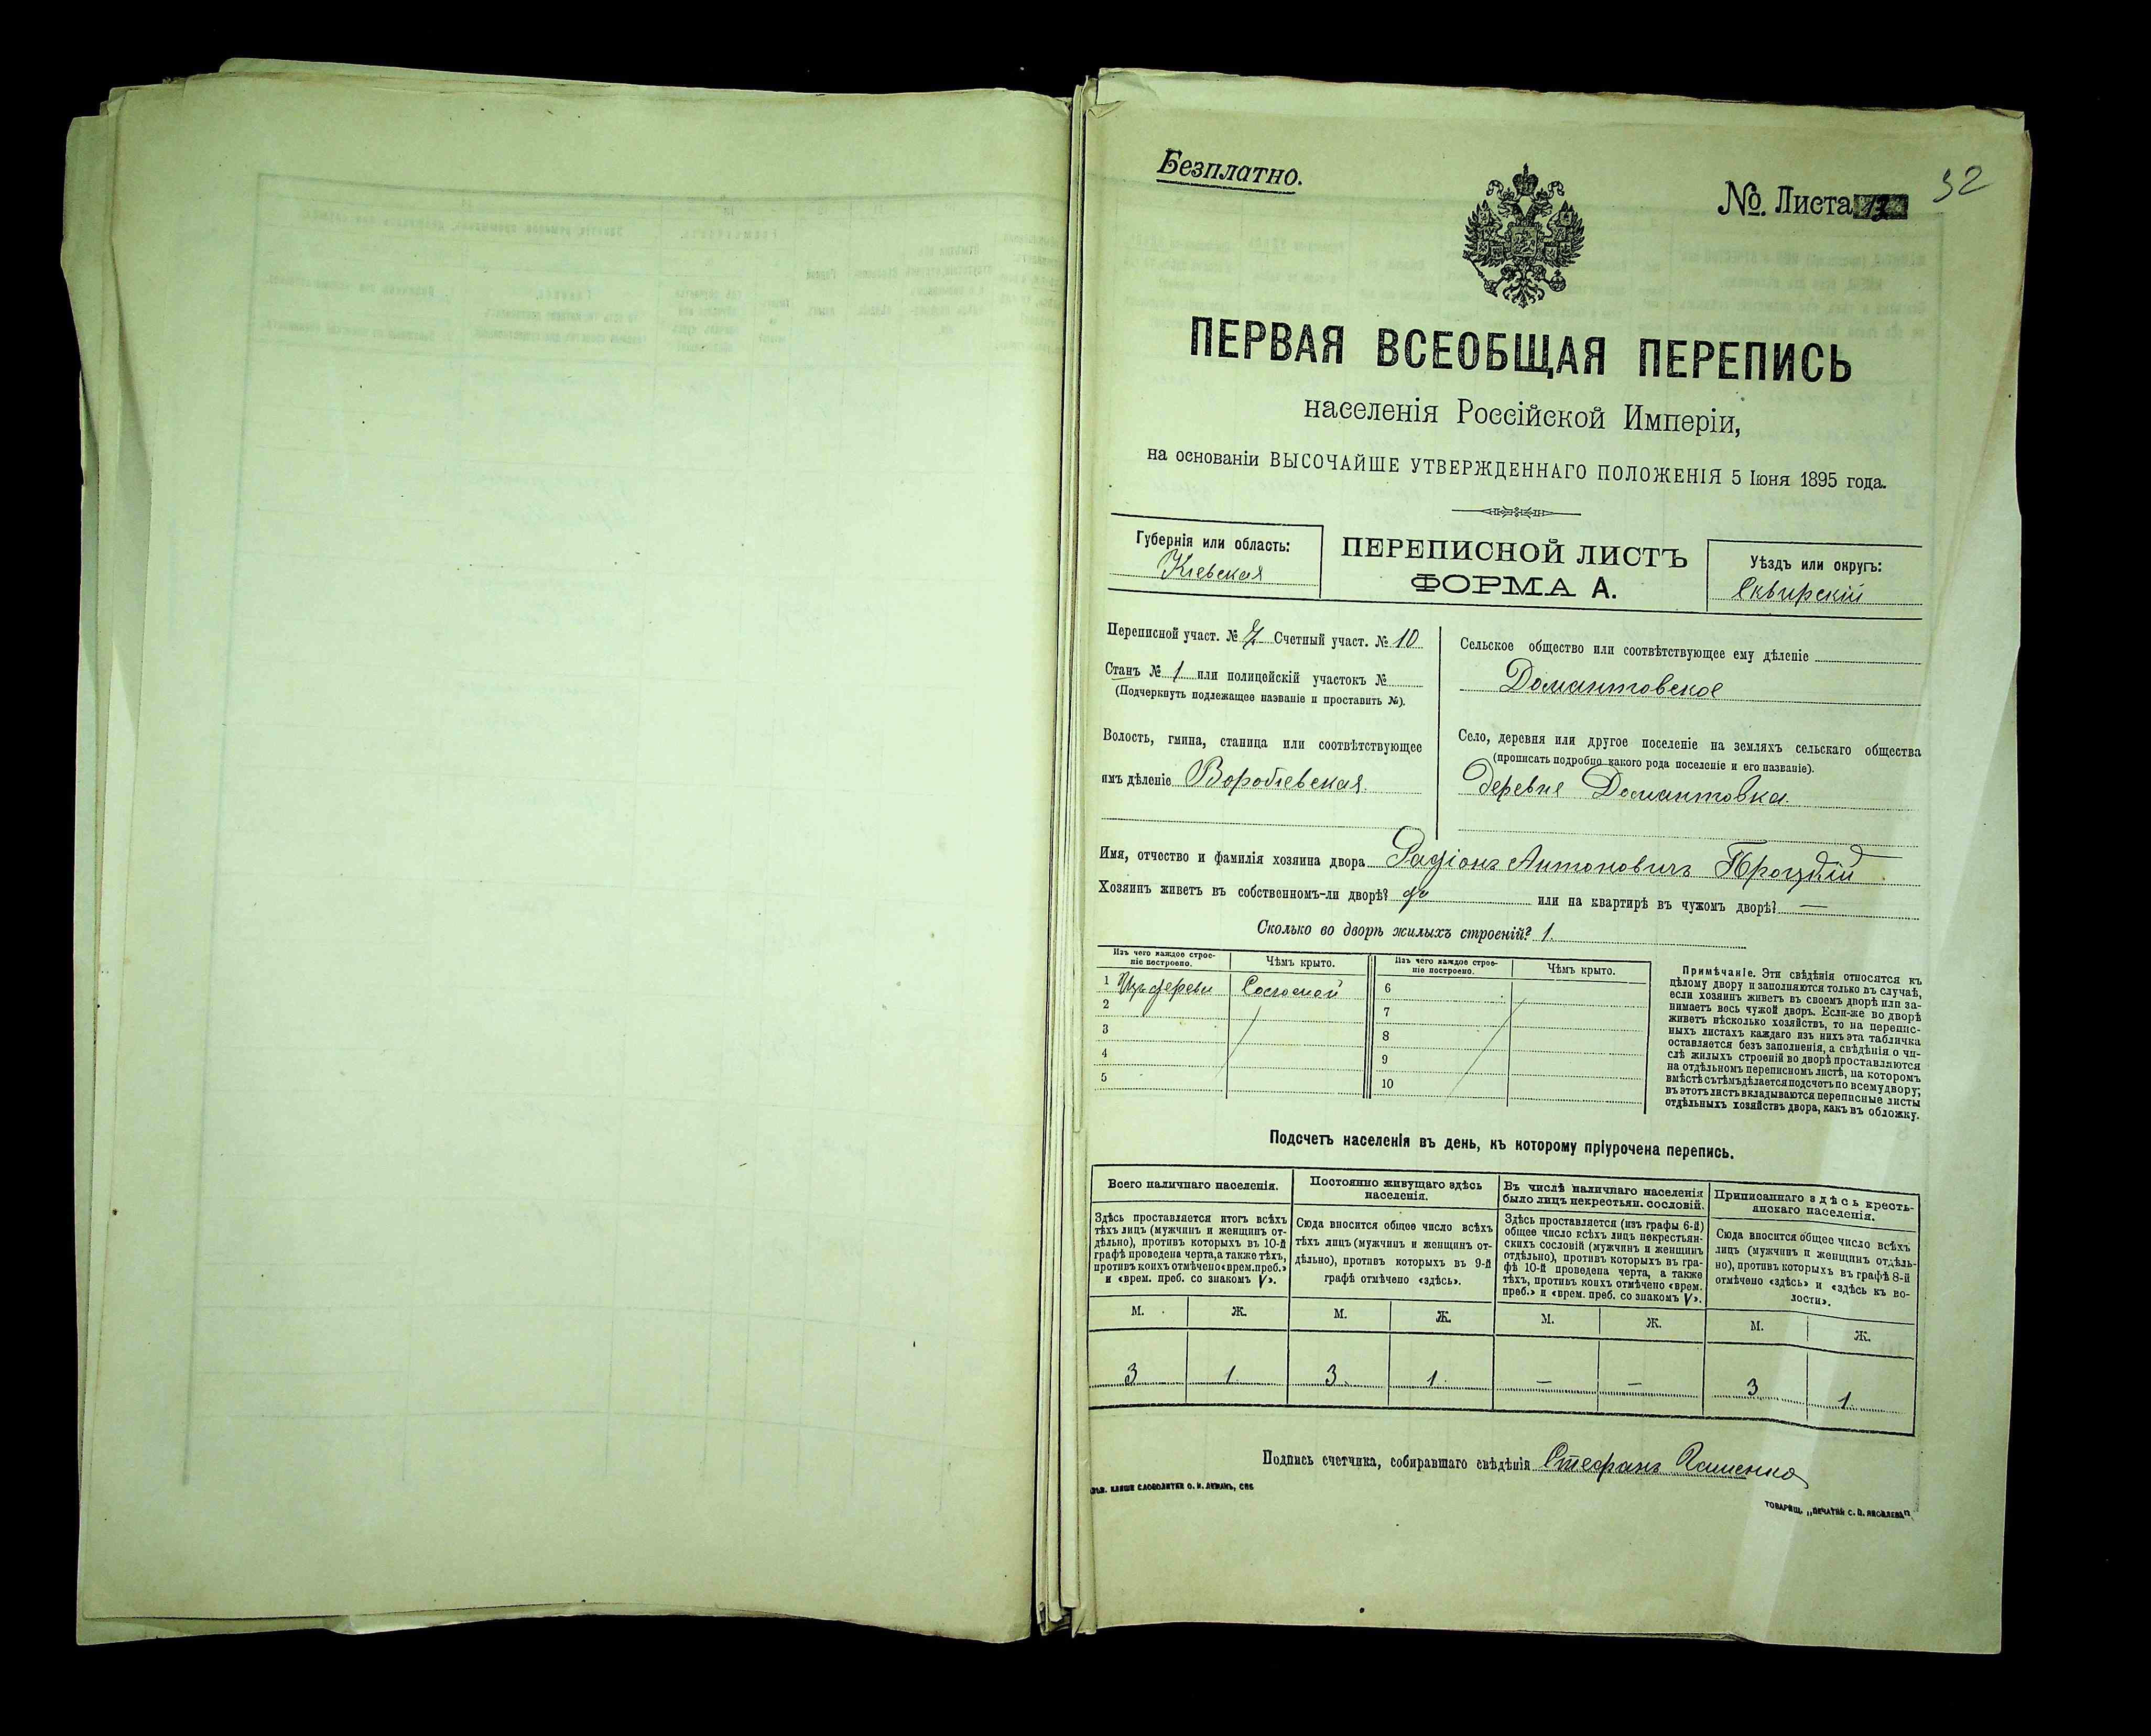 Безплатно.
№ Листа 13
32
ПЕРВАЯ ВСЕОБЩАЯ ПЕРЕПИСЬ
населенія Россійской Имперіи,
на основаніи ВЫСОЧАЙШЕ УТВЕРЖДЕННАГО ПОЛОЖЕНІЯ 5 Іюня 1895 года.
Губернія или область:
Кіевская
ПЕРЕПИСНОЙ ЛИСТЪ
ФОРМА А.
Уѣздъ или округъ:
Сквирскій
Переписной участ. № 7 Счетный участ. № 10
Станъ № 1 или полицейскій участокъ №
(Подчеркнуть подлежащее названіе и проставить №).
Волость, гмина, станица или соотвѣтствующее
имъ дѣленіе Воробіевская.
Сельское общество или соотвѣтствующее ему дѣленіе
Домантовское
Село, деревня или другое поселеніе на земляхъ сельскаго общества
(прописать подробно какого рода поселеніе и его названіе).
деревня Домантовка.
Имя, отчество и фамилія хозяина двора Радіонъ Антоновичъ
Хозяинъ живетъ въ собственномъ-ли дворѣ? да или на квартирѣ въ чужомъ дворѣ? —
Сколько во дворѣ жилыхъ строеній? 1.
Изъ чего каждое строе-
ніе построено.
Чѣмъ крыто.
Изъ чего каждое строе-
ніе построено.
Чѣмъ крыто.
1 Изъ дерева
6
2
7
3
8
4
9
5
10
Примѣчаніе. Эти свѣдѣнія относятся къ
цѣлому двору и заполняются только въ случаѣ,
если хозяинъ живетъ въ своемъ дворѣ или за-
нимаетъ весь чужой дворъ. Если-же во дворѣ
живетъ нѣсколько хозяйствъ, то на перепис-
ныхъ листахъ каждаго изъ нихъ эта табличка
оставляется безъ заполненія, а свѣдѣнія о чи-
слѣ жилыхъ строеній во дворѣ проставляются
на отдѣльномъ переписномъ листѣ, на которомъ
вмѣстѣ съ тѣмъ дѣлается подсчетъ по всему двору;
въ этотъ листъ вкладываются переписные листы
отдѣльныхъ хозяйствъ двора, какъ въ обложку.
Подсчетъ населенія въ день, къ которому пріурочена перепись.
Всего наличнаго населенія.
Здѣсь проставляется итогъ всѣхъ
тѣхъ лицъ (мужчинъ и женщинъ от-
дѣльно), противъ которыхъ въ 10-й
графѣ проведена черта, а также тѣхъ,
противъ коихъ отмѣчено «врем. преб.»
и «врем. преб. со знакомъ V».
Постоянно живущаго здѣсь
населенія.
Сюда вносится общее число всѣхъ
тѣхъ лицъ (мужчинъ и женщинъ от-
дѣльно), противъ которыхъ въ 9-й
графѣ отмѣчено «здѣсь».
Въ числѣ наличнаго населенія
было лицъ некрестьян. сословій.
Здѣсь проставляется (изъ графы 6-й)
общее число всѣхъ лицъ некрестьян-
скихъ сословій (мужчинъ и женщинъ
отдѣльно), противъ которыхъ въ гра-
фѣ 10-й проведена черта, а также
тѣхъ, противъ коихъ отмѣчено «врем.
преб.» и «врем. преб. со знакомъ V».
Приписаннаго здѣсь кресть-
янскаго населенія.
Сюда вносится общее число всѣхъ
лицъ (мужчинъ и женщинъ отдѣль-
но), противъ которыхъ въ графѣ 8-й
отмѣчено «здѣсь» и «здѣсь къ во-
лости».
М. Ж. М. Ж. М. Ж. М. Ж.
3 1 3 1 — — 3 1
Подпись счетчика, собиравшаго свѣдѣнія Стефанъ
КЛИШЕ СЛОВОЛИТНИ О. И. ЛЕМАНЪ, СПБ
ТОВАРИЩ. „ПЕЧАТНИ С. П. ЯКОВЛЕВА"